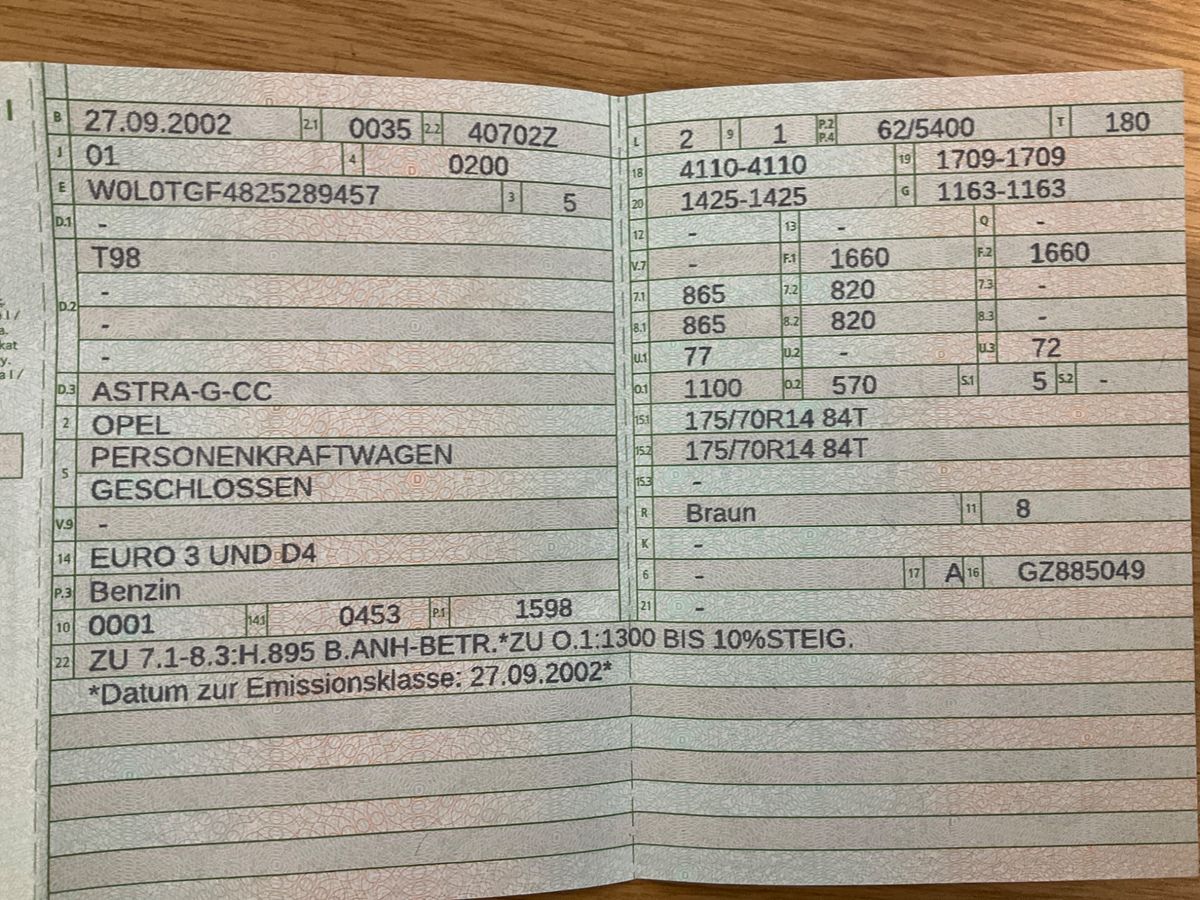 B 27.09.2002 2.1 0035 2.2 40702Z
J 01 4 0200
E W0L0TGF4825289457 3 5
D.1 -
T98
D.2 -
-
-
D.3 ASTRA-G-CC
2 OPEL
5 PERSONENKRAFTWAGEN
GESCHLOSSEN
V.9 -
14 EURO 3 UND D4
P.3 Benzin
10 0001 14.1 0453 P.1 1598
22 ZU 7.1-8.3:H.895 B.ANH-BETR.*ZU O.1:1300 BIS 10%STEIG.
*Datum zur Emissionsklasse: 27.09.2002*
L 2 9 1 P.2 P.4 62/5400 T 180
18 4110-4110 19 1709-1709
20 1425-1425 G 1163-1163
12 - 13 - Q -
V.7 - F.1 1660 F.2 1660
7.1 865 7.2 820 7.3 -
8.1 865 8.2 820 8.3 -
U.1 77 U.2 - U.3 72
O.1 1100 O.2 570 S.1 5 S.2 -
15.1 175/70R14 84T
15.2 175/70R14 84T
15.3 -
R Braun 11 8
K -
6 - 17 A 16 GZ885049
21 -